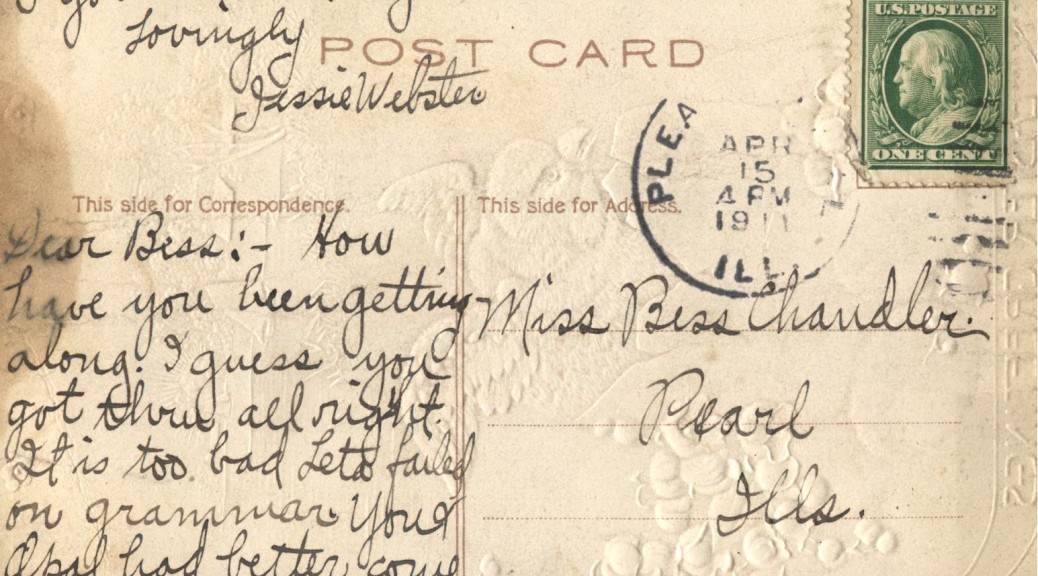 Lovingly
Jessie Webster
POST CARD
U.S. POSTAGE
ONE CENT
PLEA
APR
15
4 PM
1911
ILL.
This side for Correspondence.
This side for Address.
Dear Bess:- How
have you been getting
along. I guess you
got thru all right.
It is too bad Leta failed
on grammar. You &
Opal had better come
Miss Bess Chandler.
Pearl
Ills.